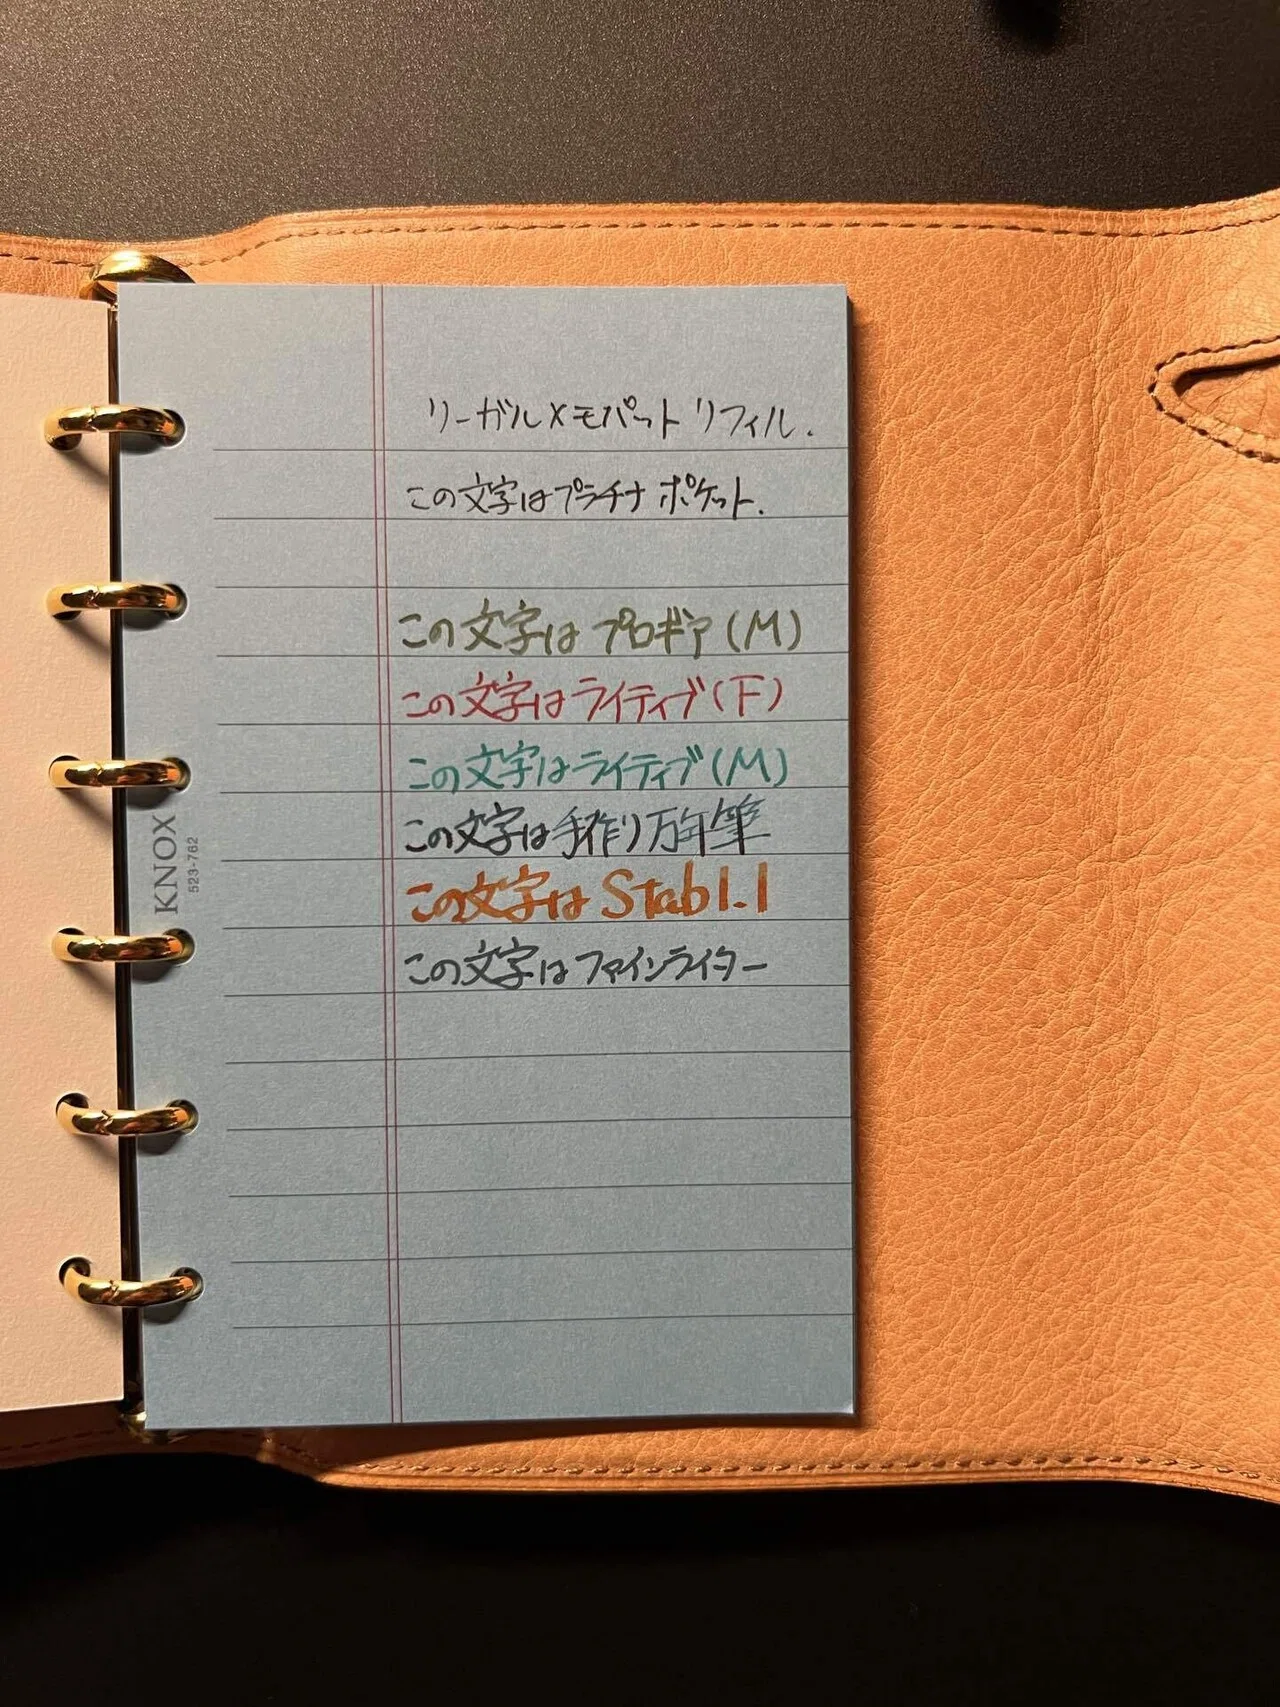 リーガル×モパット リフィル.
この文字はプラチナ ポケット.
この文字は プロギア (M)
この文字は ライティブ (F)
この文字は ライティブ (M)
この文字は手作り万年筆
この文字は Stab 1.1
この文字は ファインライター
KNOX
523-762